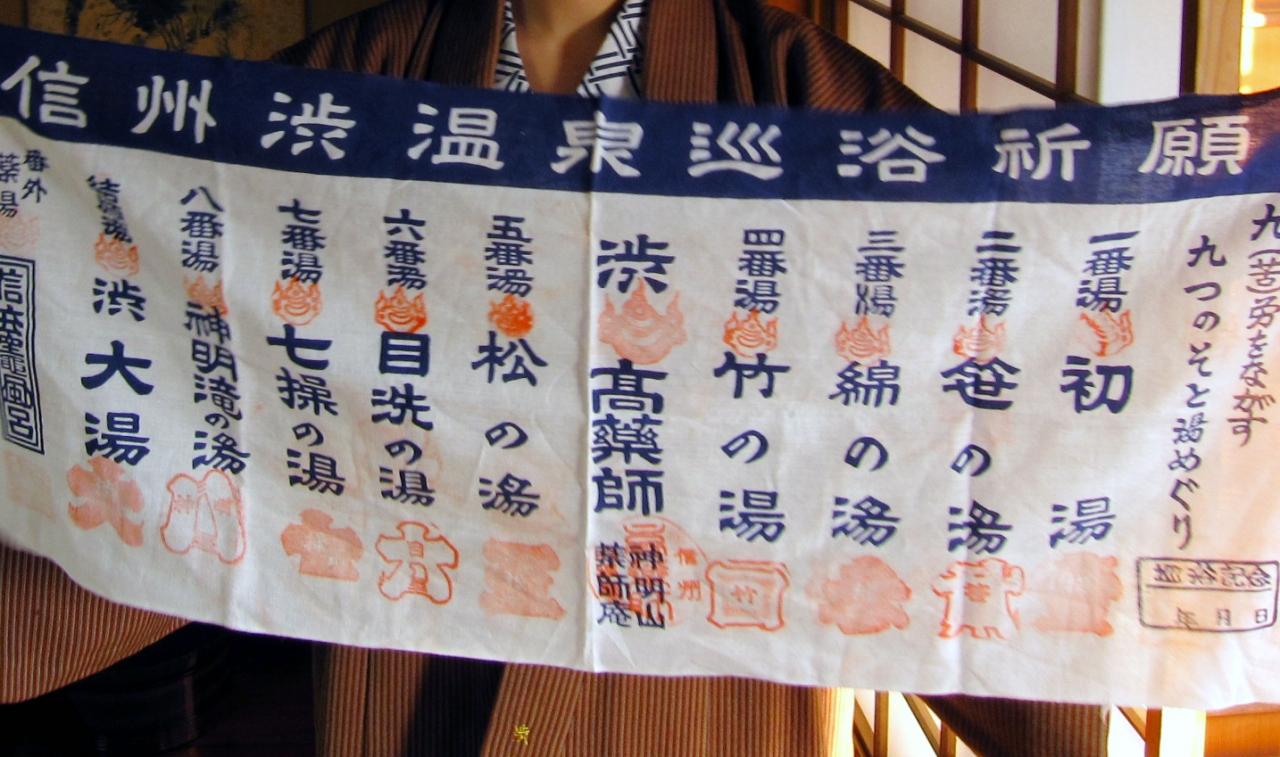 信州渋温泉巡浴祈願
九(苦)労をながす
九つのそと湯めぐり
巡浴記念
年 月 日
一番湯 初湯
二番湯 笹の湯
三番湯 綿の湯
四番湯 竹の湯
竹
渋高薬師
信州
神明山
薬師庵
五番湯 松の湯
六番湯 目洗の湯
七番湯 七操の湯
八番湯 神明滝の湯
結願湯 渋大湯
番外
薬湯
渋